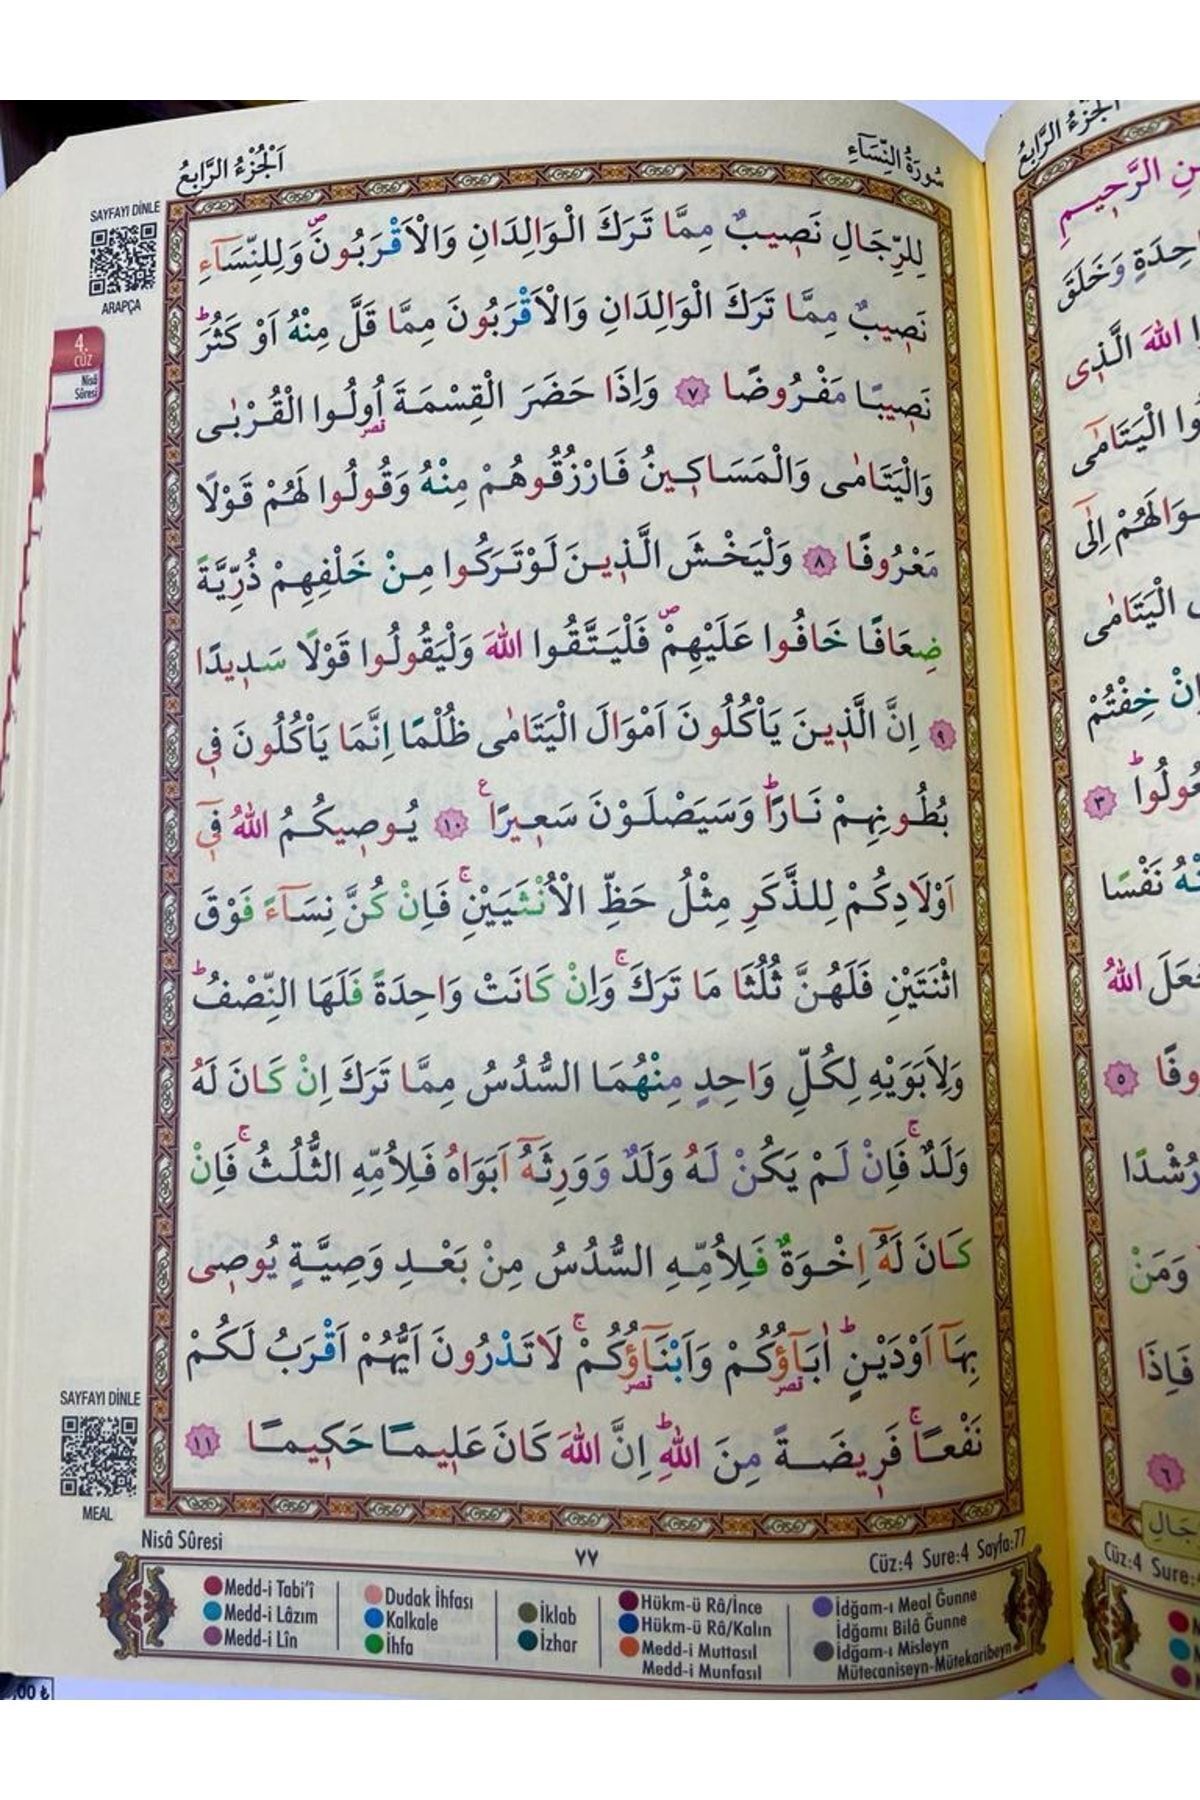 اَلْجُزْءُ الرَّابِعُ
سُورَةُ النِّسَاءِ
SAYFAYI DİNLE
ARAPÇA
4.
CÜZ
Nisâ
Sûresi
لِلرِّجَالِ نَصِيبٌ مِمَّا تَرَكَ الْوَالِدَانِ وَالْاَقْرَبُونَۖ وَلِلنِّسَٓاءِ
نَصِيبٌ مِمَّا تَرَكَ الْوَالِدَانِ وَالْاَقْرَبُونَ مِمَّا قَلَّ مِنْهُ اَوْ كَثُرَۜ
نَصِيبًا مَفْرُوضًا ٧ وَاِذَا حَضَرَ الْقِسْمَةَ اُو۬لُوا الْقُرْبٰى
وَالْيَتَامٰى وَالْمَسَاكِينُ فَارْزُقُوهُمْ مِنْهُ وَقُولُوا لَهُمْ قَوْلًا
مَعْرُوفًا ٨ وَلْيَخْشَ الَّذِينَ لَوْ تَرَكُوا مِنْ خَلْفِهِمْ ذُرِّيَّةً
ضِعَافًا خَافُوا عَلَيْهِمْۖ فَلْيَتَّقُوا اللّٰهَ وَلْيَقُولُوا قَوْلًا سَدِيدًا
٩ اِنَّ الَّذِينَ يَأْكُلُونَ اَمْوَالَ الْيَتَامٰى ظُلْمًا اِنَّمَا يَأْكُلُونَ فِي
بُطُونِهِمْ نَارًاۜ وَسَيَصْلَوْنَ سَعِيرًاع ١٠ يُوصِيكُمُ اللّٰهُ فِٓي
اَوْلَادِكُمْ لِلذَّكَرِ مِثْلُ حَظِّ الْاُنْثَيَيْنِۚ فَاِنْ كُنَّ نِسَٓاءً فَوْقَ
اثْنَتَيْنِ فَلَهُنَّ ثُلُثَا مَا تَرَكَۚ وَاِنْ كَانَتْ وَاحِدَةً فَلَهَا النِّصْفُۜ
وَلِاَبَوَيْهِ لِكُلِّ وَاحِدٍ مِنْهُمَا السُّدُسُ مِمَّا تَرَكَ اِنْ كَانَ لَهُ
وَلَدٌۚ فَاِنْ لَمْ يَكُنْ لَهُ وَلَدٌ وَوَرِثَهُٓ اَبَوَاهُ فَلِاُمِّهِ الثُّلُثُۚ فَاِنْ
كَانَ لَهُٓ اِخْوَةٌ فَلِاُمِّهِ السُّدُسُ مِنْ بَعْدِ وَصِيَّةٍ يُوصِي
بِهَٓا اَوْ دَيْنٍۜ اٰبَٓاؤُ۬كُمْ وَاَبْنَٓاؤُ۬كُمْۚ لَا تَدْرُونَ اَيُّهُمْ اَقْرَبُ لَكُمْ
نَفْعًاۚ فَرِيضَةً مِنَ اللّٰهِۜ اِنَّ اللّٰهَ كَانَ عَلِيمًا حَكِيمًا ١١
SAYFAYI DİNLE
MEAL
Nisâ Sûresi
٧٧
Cüz:4 Sure:4 Sayfa:77
Medd-i Tabi'î
Medd-i Lâzım
Medd-i Lîn
Dudak İhfası
Kalkale
İhfa
İklab
İzhar
Hükm-ü Râ/İnce
Hükm-ü Râ/Kalın
Medd-i Muttasıl
Medd-i Munfasıl
İdğam-ı Meal Ğunne
İdğamı Bilâ Ğunne
İdğam-ı Misleyn
Mütecaniseyn-Mütekaribeyn
,00 ₺
اَلْجُزْءُ الرَّابِعُ
الرَّحِيمِ
وَخَلَقَ
اللّٰهَ الَّذِي
الْيَتَامٰٓى
اِلٰٓى
الْيَتَامٰى
خِفْتُمْ
٣
نَفْسًا
اللّٰهُ
٥
رُشْدًا
وَمَنْ
فَاِذَا
٦
Cüz:4 Sure:4